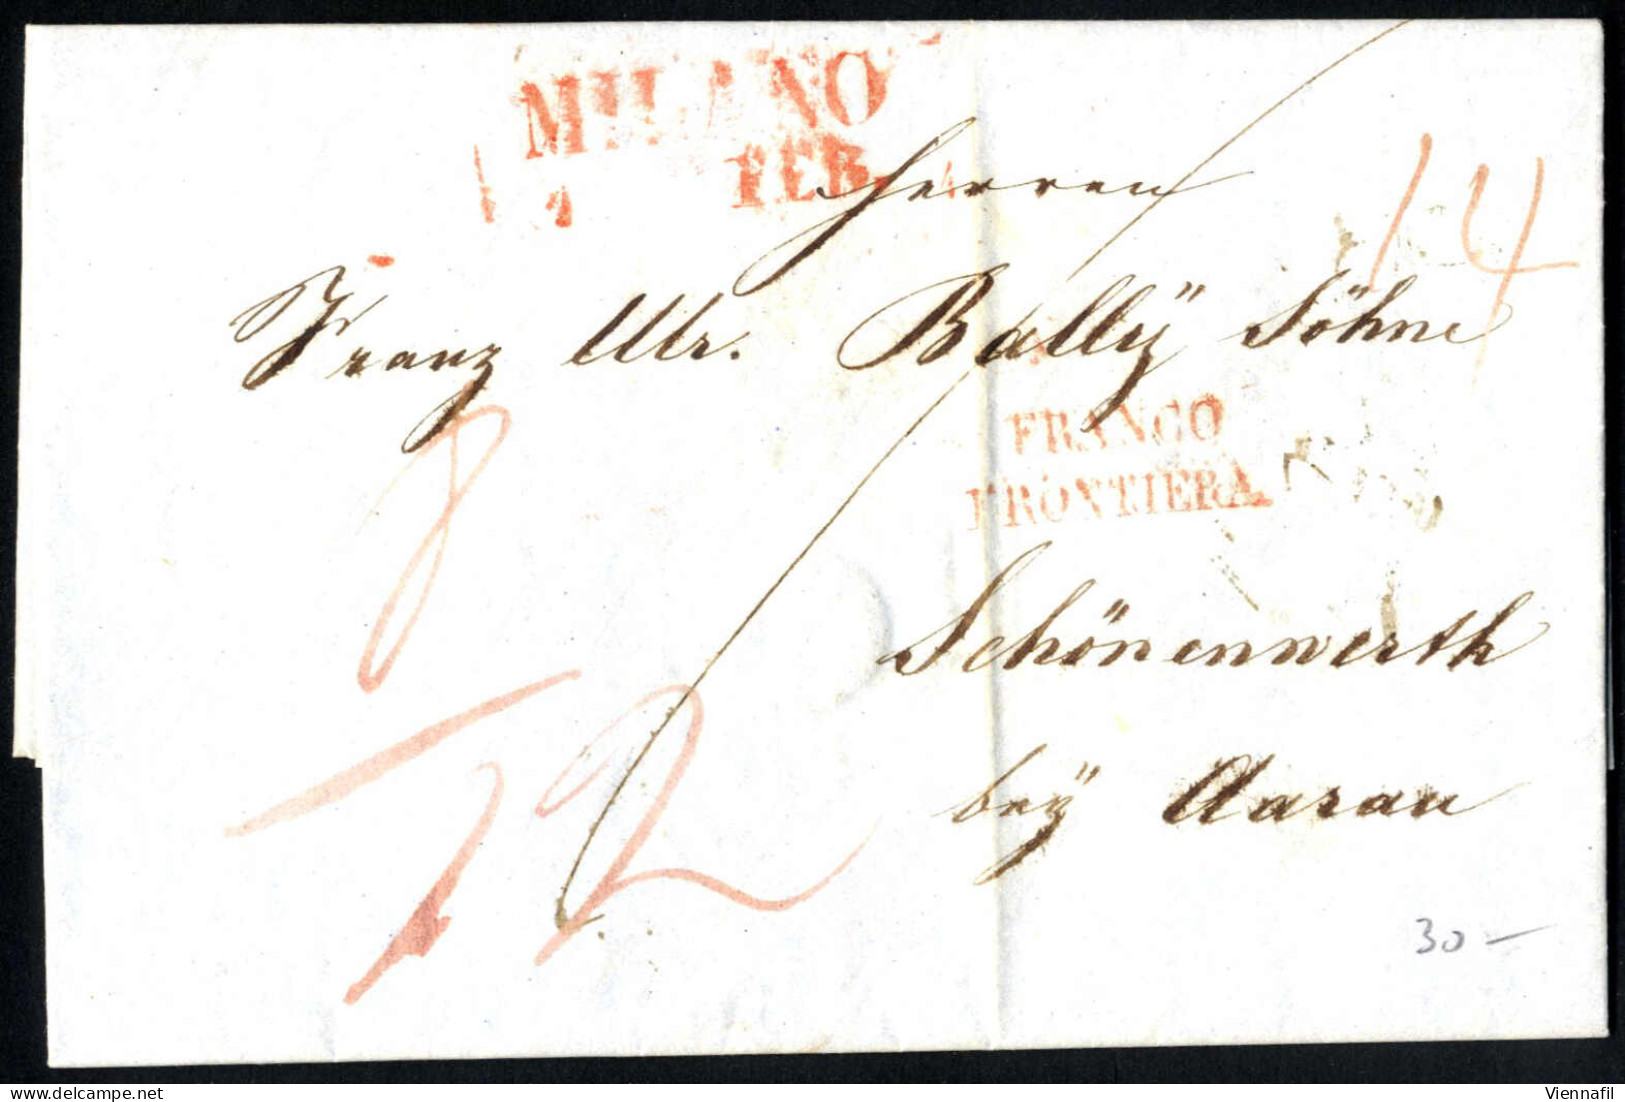 MILANO
FEB.
Herren
14
Franz Ulr. Ballÿ Söhne
FRANCO
FRONTIERA
Schönenwerth
beÿ Aarau
30 —
Viennafil